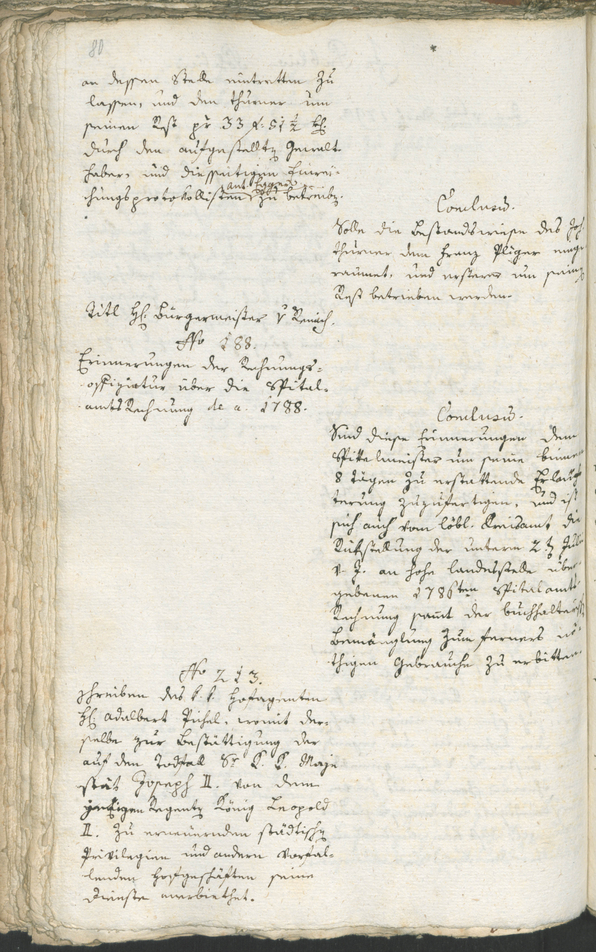 80
an dessen Stelle eintretten zu
lassen, und den thurner um
seinen Rest pr 33 f. 51 ½ xr
durch den aufgestellten Gewalt-
haber, und diesseitigen Einrei-
chungsprotokollisten ant. Egger zu betreiben.
Conclusum.
Solle die Bestandswiesen des Joh.
thurner dem Franz Pliger einge-
raumet, und ersterer um seinen
Rest betrieben werden.
Titl H. Bürgermeister v
No 188.
Erinnerungen der Rechnungs-
offiziatur über die Spital-
amts Rechnung de a. 1788.
Conclusum.
Sind diese Erinnerungen dem
Spittelmeister um seine binnen
8 tägen zu erstattende Erläut-
terung zuzufertigen, und ist
sich auch vom löbl. Kreisamt die
Rükstellung der unterm
v. J. an hohe Landesstelle über-
gebenen 1786ten Spitalamts
Rechnung samt der buchhalter
Bemänglung zum ferners nö-
thigen Gebrauche zu erbitten.
No 213.
Schreiben des k. k. Hofagenten
H. Adalbert Pichel, womit der-
selbe zur Bestättigung der
auf den Todfall Sr K. K. Maje-
stät Joseph II. von dem
jetzigen Regenten König Leopold
II. zu erneuernden städtischen
Privilegien und andern vorfal-
lenden Hofgeschäften seine
Dienste anerbiethet.